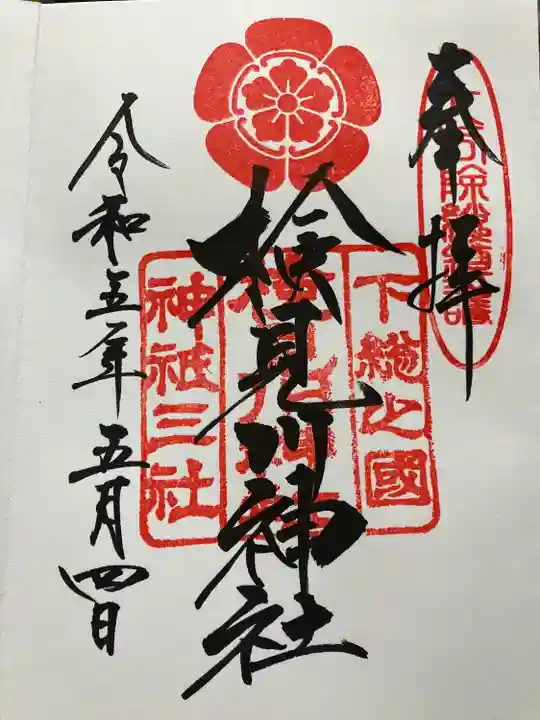 奉拝
下総之國
検見川神社
神祗三社
令和五年五月四日